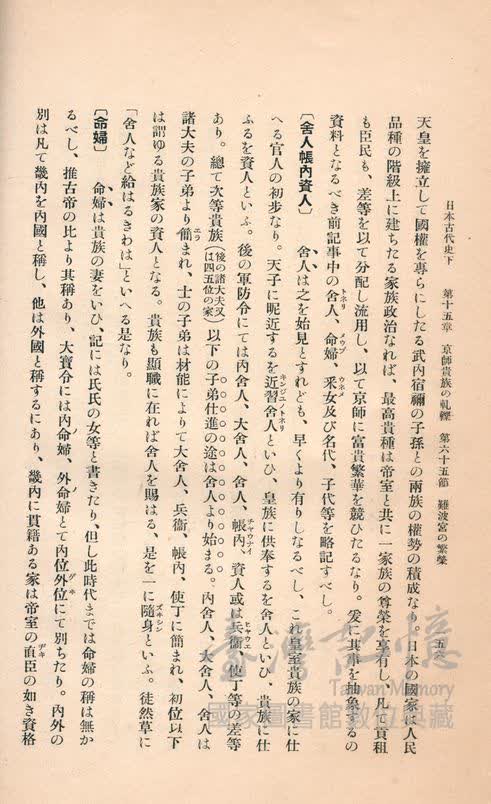 日本古代史下 第十五章 京師貴族の軋轢 第六十五節 難波宮の繁榮
天皇を擁立して國權を專らにしたる武內宿禰の子孫との兩族の權勢の積成なり、日本の國家は人民
品種の階級上に建ちたる家族政治なれば、最高貴種は帝室と共に一家族の尊榮を享有し、凡て貢租
も臣民も、差等を以て分配し流用し、以て京師に富貴繁華を競ひたるなり。爰に其事を抽象するの
資料となるべき前記事中の舍人、命婦、釆女及び名代、子代等を略記すべし。
〔舍人帳內資人〕 舍人は之を始見とすれども、早くより有りしなるべし、これ皇室貴族の家に仕
へる官人の初步なり。天子に昵近するを近習舍人といひ、皇族に供奉するを舍人といひ、貴族に仕
ふるを資人といふ。後の軍防令にては內舍人、大舍人、舍人、帳內、資人或は兵衞、使丁等の差等
あり。總て次等貴族（後の諸大夫又は四五位の家）以下の子弟仕進の途は舍人より始まる。內舍人、大舍人、舍人は
諸大夫の子弟より簡まれ、士の子弟は材能によりて大舍人、兵衞、帳內、使丁に簡まれ、初位以下
は謂ゆる貴族家の資人となる。貴族も顯職に在れば舍人を賜はる、是を一に隨身といふ。徒然草に
「舍人など給はるきわは」といへる是なり。
〔命婦〕 命婦は貴族の妻をいひ、記には氏氏の女等と書きたり、但し此時代までは命婦の稱は無か
るべし、推古帝の比より其稱あり、大寶令には內命婦、外命婦とて內位外位にて別ちたり。內外の
別は凡て畿內を內國と稱し、他は外國と稱するにあり、畿內に貫籍ある家は帝室の直臣の如き資格
臺灣記憶
Taiwan Memory
國家圖書館數位典藏